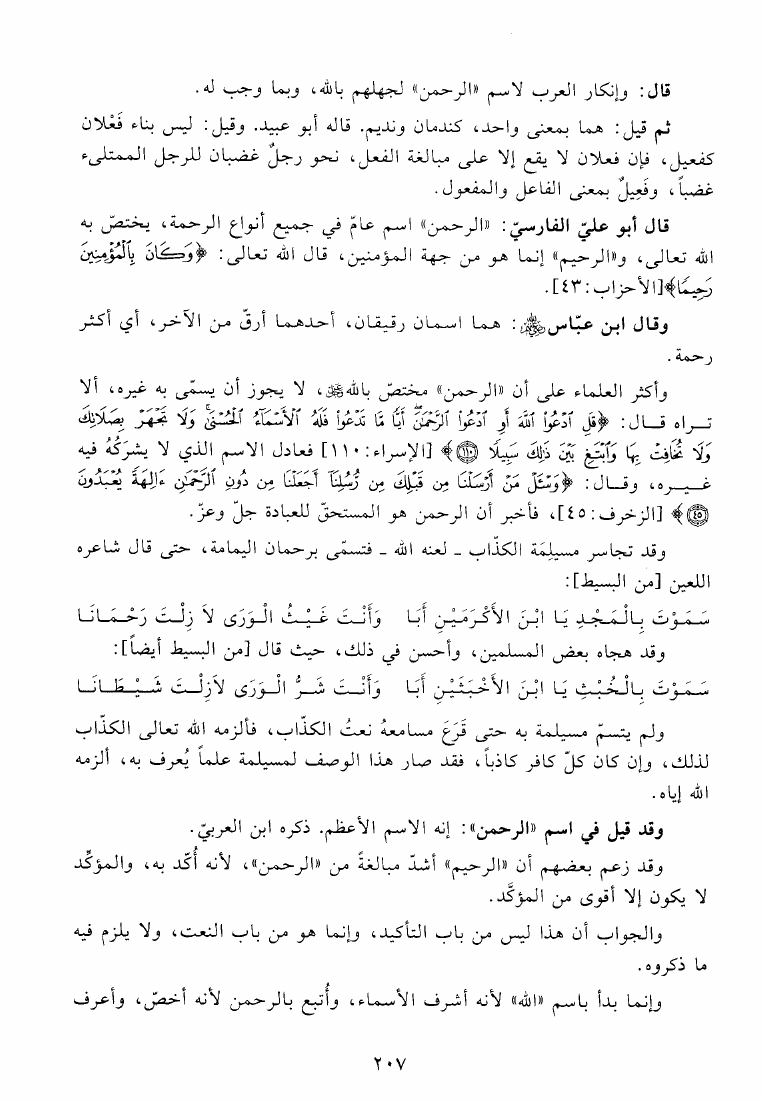 قال: وإنكار العرب لاسم «الرحمن» لجهلهم بالله، وبما وجب له.
ثم قيل: هما بمعنى واحد، كندمان ونديم. قاله أبو عبيد. وقيل: ليس بناء فَعْلان
كفعيل، فإن فعلان لا يقع إلا على مبالغة الفعل، نحو رجلٌ غضبان للرجل الممتلىء
غضباً، وفَعِيلٌ بمعنى الفاعل والمفعول.
قال أبو عليّ الفارسيّ: «الرحمن» اسم عامّ في جميع أنواع الرحمة، يختصّ به
الله تعالى، و«الرحيم» إنما هو من جهة المؤمنين، قال الله تعالى: ﴿وَكَانَ بِٱلْمُؤْمِنِينَ
رَحِيمًا﴾[الأحزاب: ٤٣].
وقال ابن عبّاس ﷺ: هما اسمان رقيقان، أحدهما أرقّ من الآخر، أي أكثر
رحمة.
وأكثر العلماء على أن «الرحمن» مختصّ بالله ﷻ، لا يجوز أن يسمّى به غيره، ألا
تراه قال: ﴿قُلِ ٱدْعُوا۟ ٱللَّهَ أَوِ ٱدْعُوا۟ ٱلرَّحْمَٰنَ أَيًّا مَّا تَدْعُوا۟ فَلَهُ ٱلْأَسْمَآءُ ٱلْحُسْنَىٰ وَلَا تَجْهَرْ بِصَلَاتِكَ
وَلَا تُخَافِتْ بِهَا وَٱبْتَغِ بَيْنَ ذَٰلِكَ سَبِيلًا ۝١١٠﴾ [الإسراء: ١١٠] فعادل الاسم الذي لا يشركُهُ فيه
غيره، وقال: ﴿وَسْـَٔلْ مَنْ أَرْسَلْنَا مِن قَبْلِكَ مِن رُّسُلِنَآ أَجَعَلْنَا مِن دُونِ ٱلرَّحْمَٰنِ ءَالِهَةً يُعْبَدُونَ
۝٤٥﴾ [الزخرف: ٤٥]، فأخبر أن الرحمن هو المستحقّ للعبادة جلّ وعزّ.
وقد تجاسر مسيلِمَة الكذّاب ـ لعنه الله ـ فتسمّى برحمان اليمامة، حتى قال شاعره
اللعين [من البسيط]:
سَمَوْتَ بِالْمَجْدِ يَا ابْنَ الأَكْرَمَيْنِ أَبَا وَأَنْتَ غَيْثُ الْوَرَى لاَ زِلْتَ رَحْمَانَا
وقد هجاه بعض المسلمين، وأحسن في ذلك، حيث قال [من البسيط أيضاً]:
سَمَوْتَ بِالْخُبْثِ يَا ابْنَ الأَخْبَثَيْنِ أَبَا وَأَنْتَ شَرُّ الْوَرَى لاَزِلْتَ شَيْطَانَا
ولم يتسمّ مسيلمة به حتى قَرَعَ مسامعهُ نعتُ الكذّاب، فألزمه الله تعالى الكذّاب
لذلك، وإن كان كلّ كافر كاذباً، فقد صار هذا الوصف لمسيلمة علماً يُعرف به، ألزمه
الله إياه.
وقد قيل في اسم «الرحمن»: إنه الاسم الأعظم. ذكره ابن العربيّ.
وقد زعم بعضهم أن «الرحيم» أشدّ مبالغةً من «الرحمن»، لأنه أُكّد به، والمؤكِّد
لا يكون إلا أقوى من المؤكَّد.
والجواب أن هذا ليس من باب التأكيد، وإنما هو من باب النعت، ولا يلزم فيه
ما ذكروه.
وإنما بدأ باسم «الله» لأنه أشرف الأسماء، وأُتبع بالرحمن لأنه أخصّ، وأعرف
٢٠٧